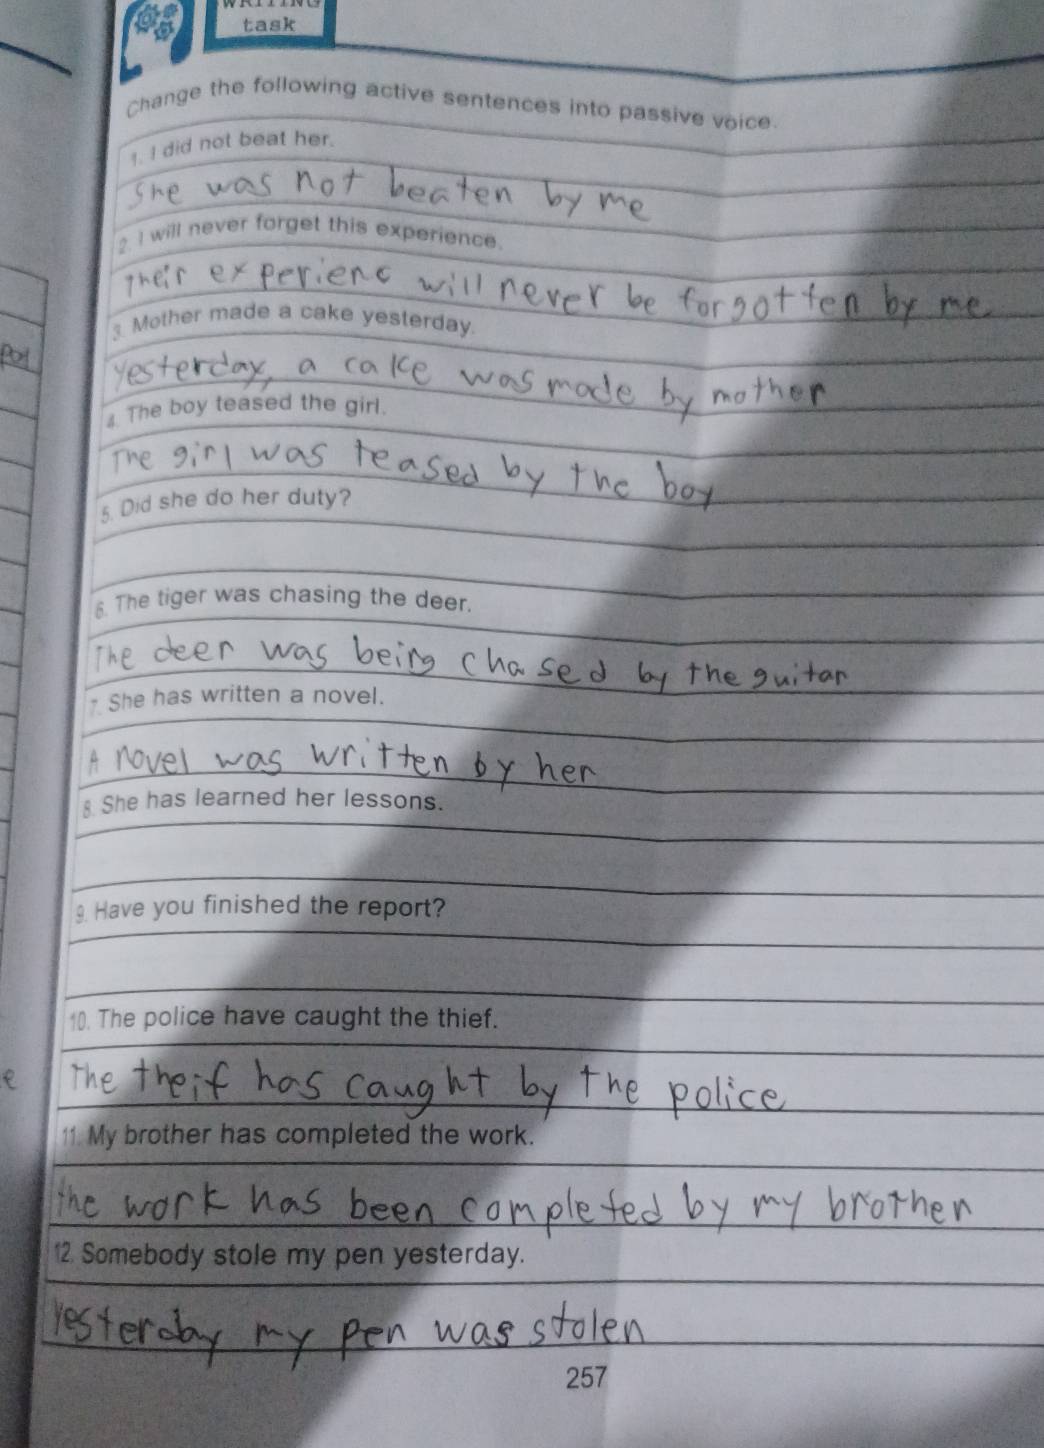 WRITING
task
Change the following active sentences into passive voice.
1. I did not beat her.
She was not beaten by me
2. I will never forget this experience.
Their experienc will never be forgotten by me
3. Mother made a cake yesterday.
yesterday, a cake was made by mother
4. The boy teased the girl.
The girl was teased by the boy
5. Did she do her duty?
6. The tiger was chasing the deer.
The deer was being chased by the guitar
7. She has written a novel.
A novel was written by her
8. She has learned her lessons.
9. Have you finished the report?
10. The police have caught the thief.
The theif has caught by the police
11. My brother has completed the work.
the work has been completed by my brother
12. Somebody stole my pen yesterday.
Yesterday my pen was stolen
257